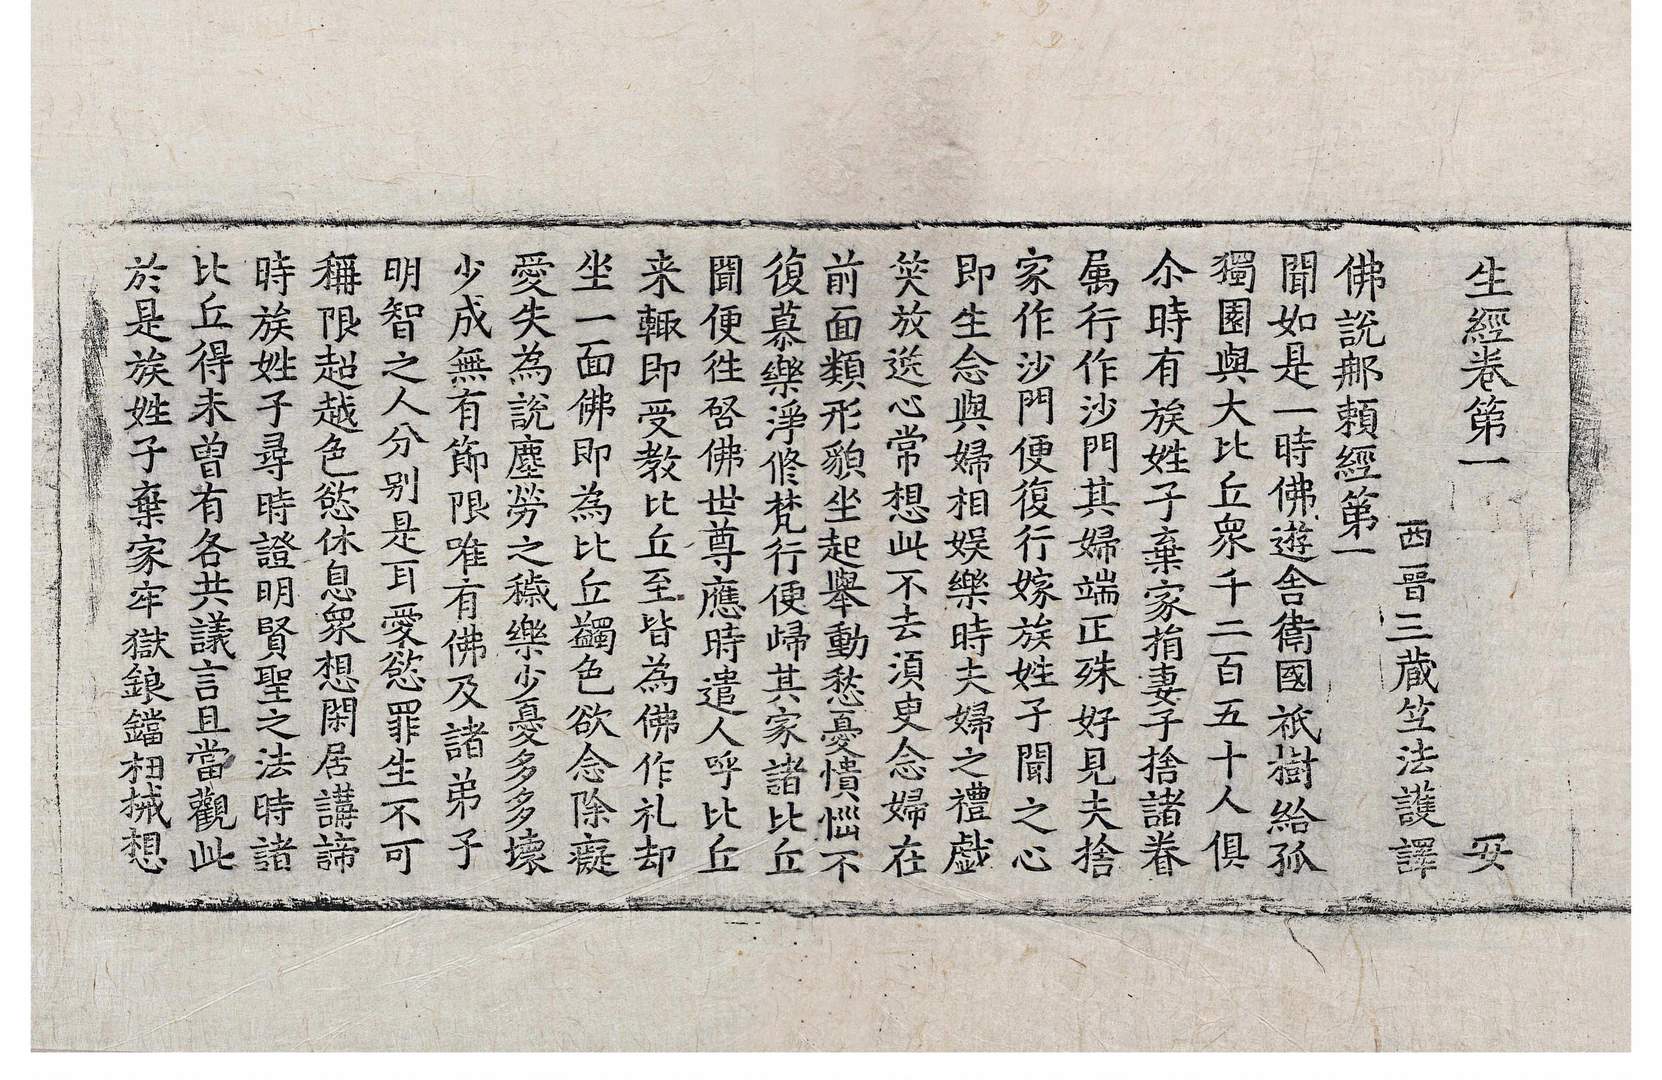 生經卷第一 安
西晉三藏竺法護譯
佛說䣯賴經第一
聞如是一時佛遊舍衛國祇樹給孤
獨園與大比丘衆千二百五十人俱
尒時有族姓子棄家捐妻子捨諸眷
属行作沙門其婦端正殊好見夫捨
家作沙門便復行嫁族姓子聞之心
即生念與婦相娛樂時夫婦之禮戲
笑放逸心常想此不去須臾念婦在
前面類形貌坐起舉動愁憂憒惱不
復慕樂淨修梵行便歸其家諸比丘
聞便徃啓佛世尊應時遣人呼比丘
来輙即受教比丘至皆為佛作礼却
坐一面佛即為比丘蠲色欲念除癡
愛失為說塵勞之穢樂少憂多多壞
少成無有節限唯有佛及諸弟子
明智之人分别是耳愛慾罪生不可
稱限超越色慾休息衆想閑居講諦
時族姓子尋時證明賢聖之法時諸
比丘得未曽有各共議言且當觀此
於是族姓子棄家牢獄鋃鐺杻械想